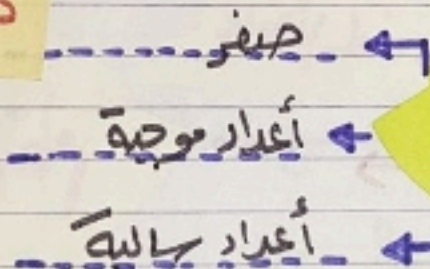 صفر
أعداد موجبة
أعداد سالبة